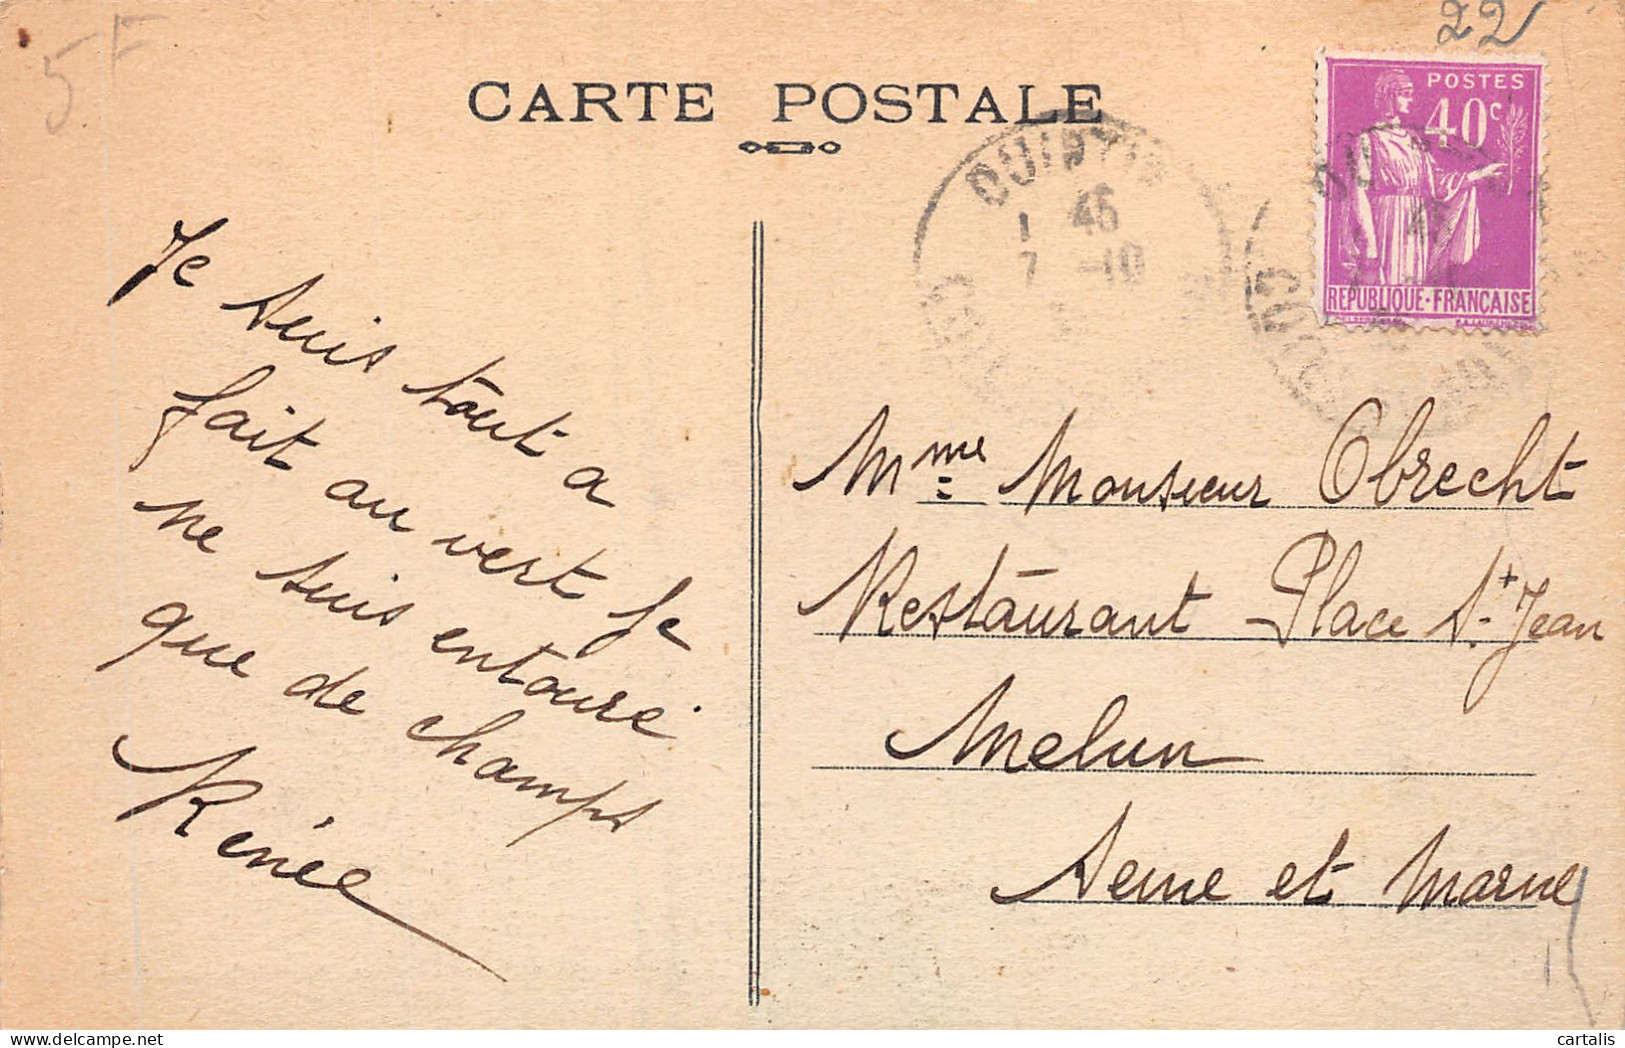 5F
22
CARTE POSTALE
POSTES
40c
REPUBLIQUE·FRANÇAISE
1 45
7 -10
Je suis tout a
fait au vert je
ne suis entouré
que de champs
Renée
Mme Monsieur Obrecht
Restaurant Place St Jean
Melun
Seine et Marne
cartalis